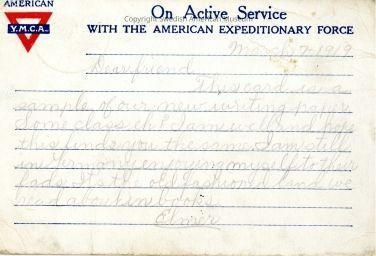 Copyright Swedish American Museum
AMERICAN
Y.M.C.A.
On Active Service
WITH THE AMERICAN EXPEDITIONARY FORCE
March 7-1919
Dear friend
This card is a
sample of our new writing paper
Some class eh? I am well and hope
this finds you the same. I am still
in Germany enjoying myself to their
fads. It's the old fashioned land we
read about in books.
Elmer